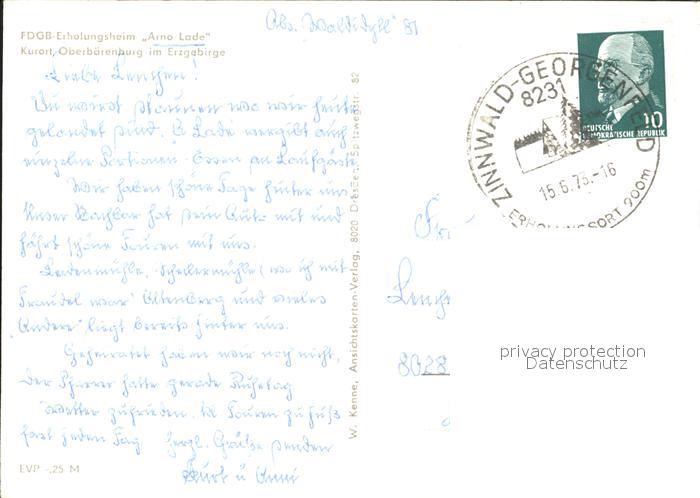 Abs. Waldidyll 81
FDGB-Erholungsheim „Arno Lade"
Kurort Oberbärenburg im Erzgebirge
Liebe Lenchen!
Du wirst staunen wo wir heute
gelandet sind. A Lade vergibt auch
einzelne Portionen Essen an Laufgäste.
Wir haben schöne Tage hinter uns.
Unser Nachbar hat sein Auto mit und
fährt schöne Touren mit uns.
Ladenmühle, Schellermühle (wo ich mit
Traudel war) Altenberg und vieles
Andere liegt bereits hinter uns.
Geheiratet haben wir noch nicht,
der Pfarrer hatte gerade Ruhetag
Wetter zufrieden. Touren zu Fuß
fast jeden Tag Herzl. Grüße senden
Kurt u Anni
EVP -,25 M
W. Kenne, Ansichtskarten-Verlag, 8020 Dresden, Spitzwegstr. 82
ZINNWALD-GEORGENFELD
8231
15.6.73.-16
ERHOLUNGSORT 900m
10
DEUTSCHE
DEMOKRATISCHE REPUBLIK
Lenche
8028
privacy protection
Datenschutz